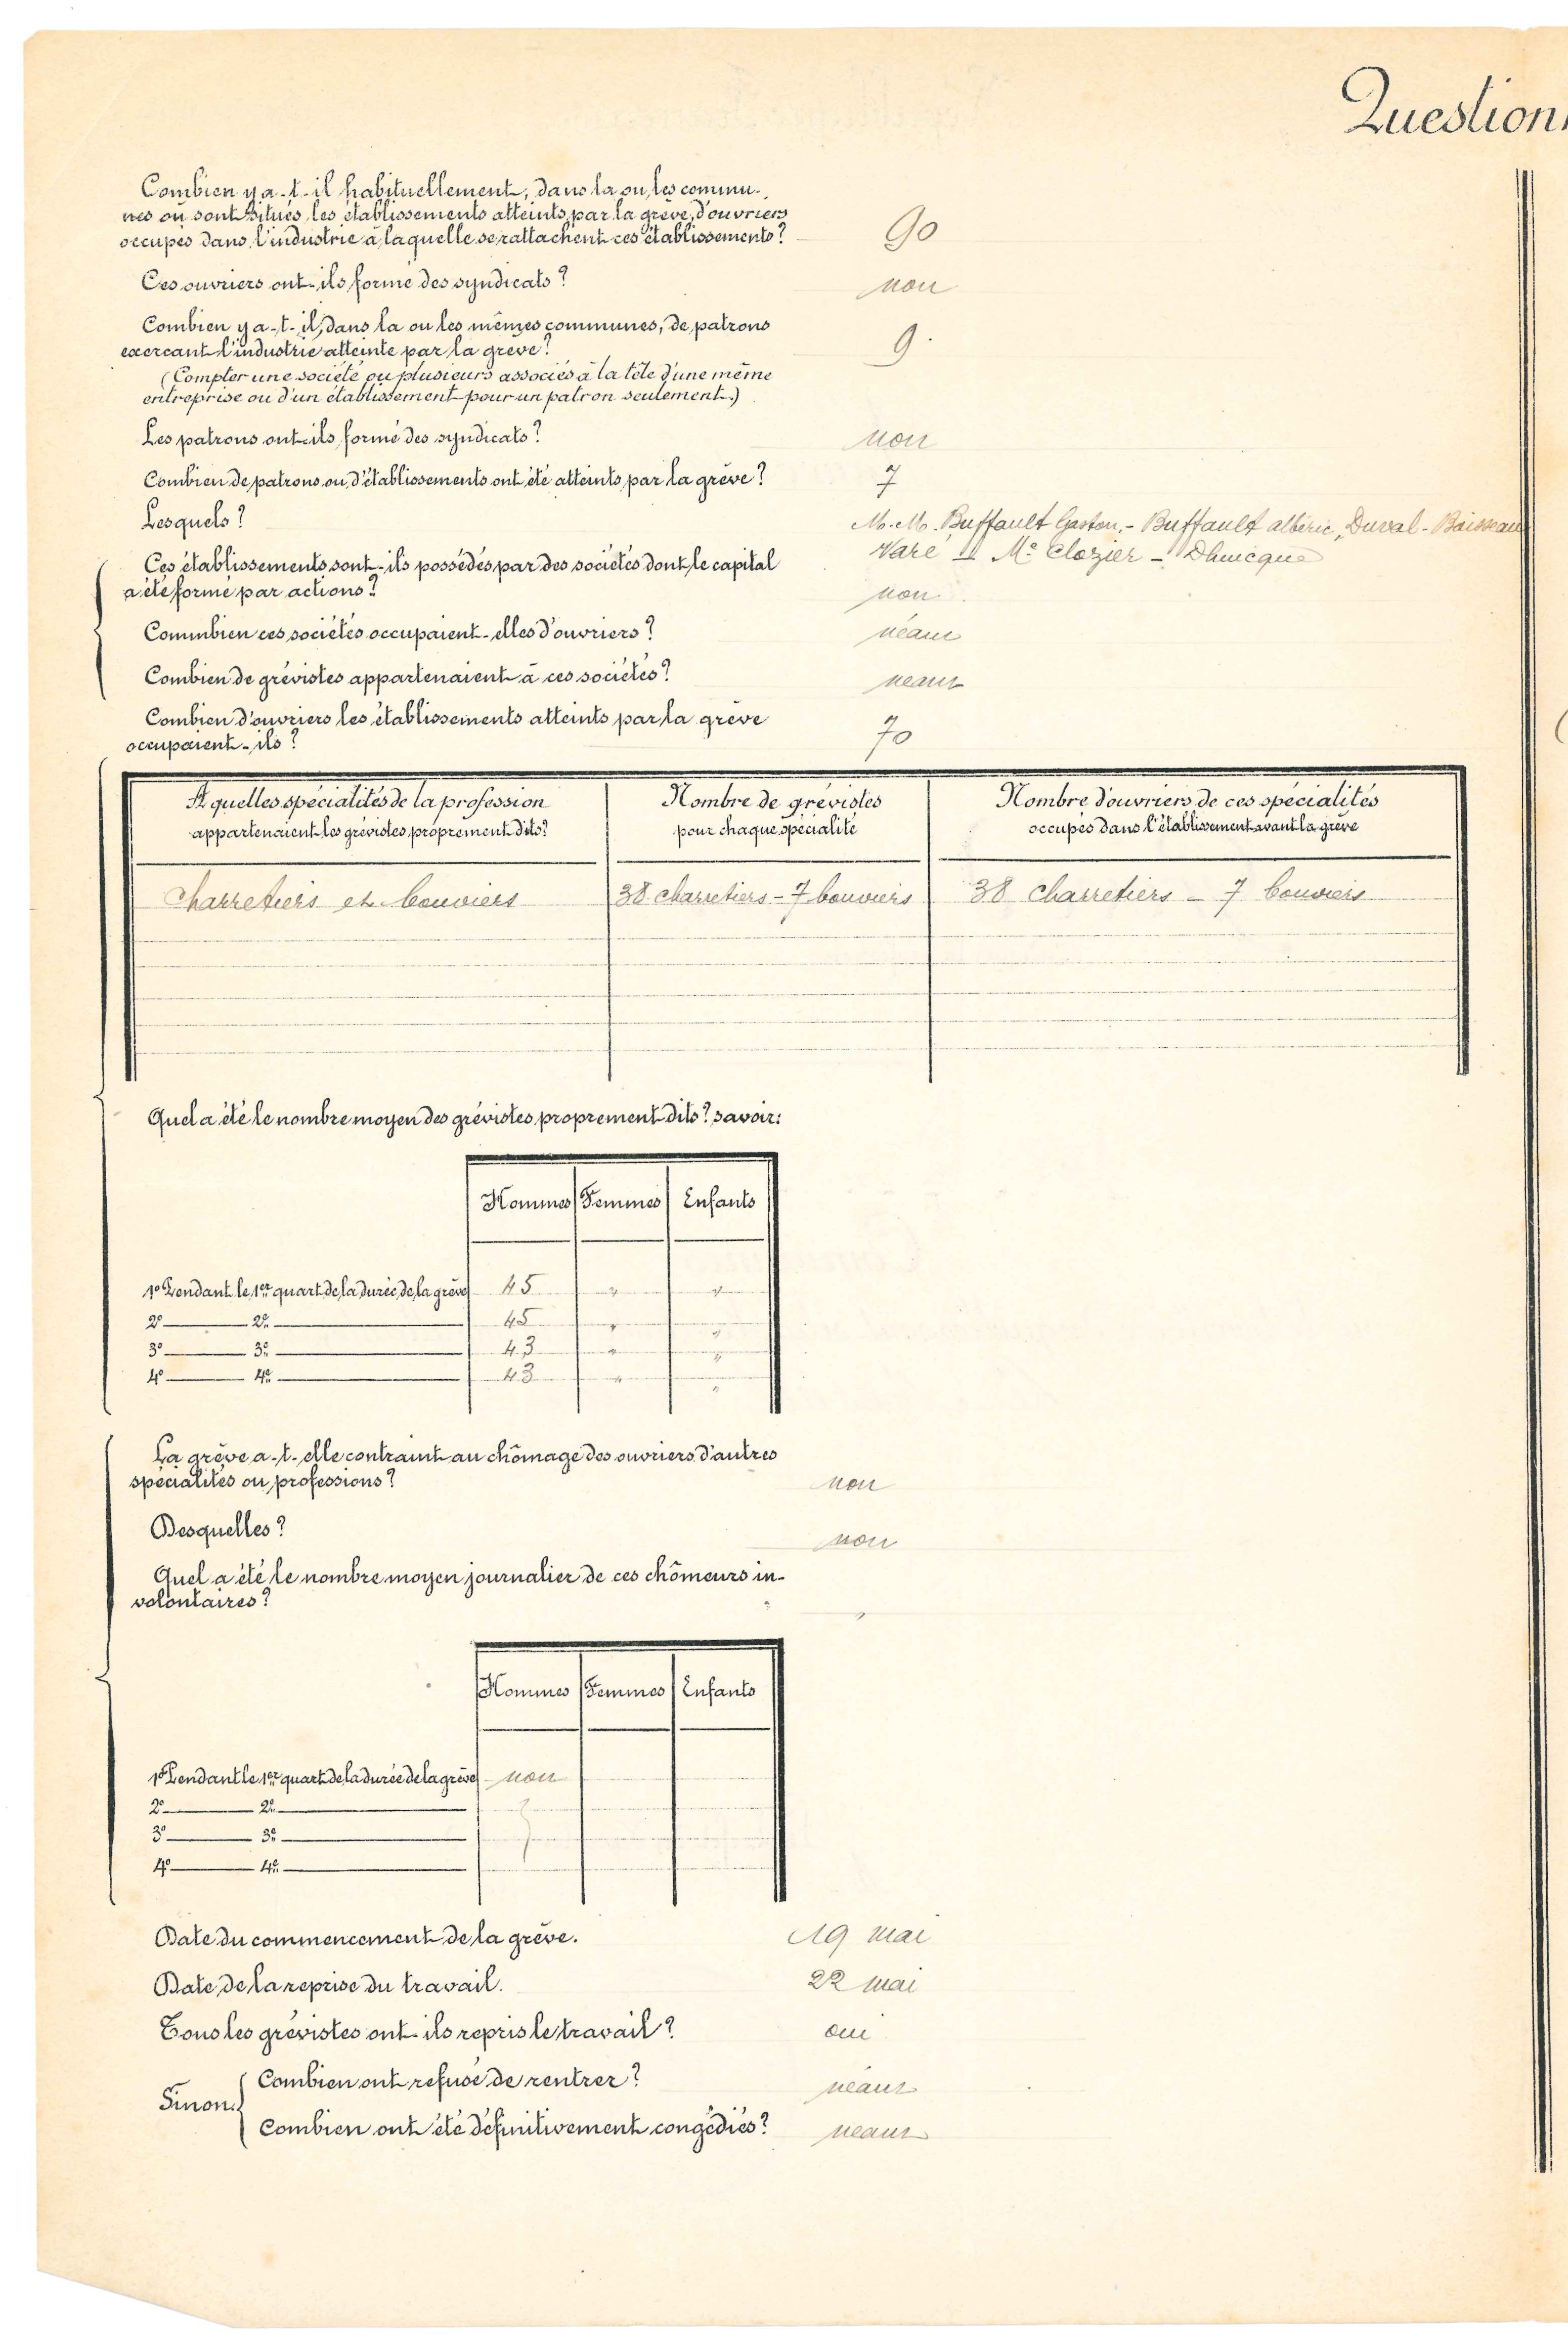 Question
Combien y a-t-il habituellement, dans la ou les commu-
nes où sont situés les établissements atteints par la grève, d'ouvriers
occupés dans l'industrie à laquelle se rattachent ces établissements? 90
Ces ouvriers ont-ils formé des syndicats? non
Combien y a-t-il, dans la ou les mêmes communes, de patrons
exerçant l'industrie atteinte par la grève? 9.
(Compter une société ou plusieurs associés à la tête d'une même
entreprise ou d'un établissement pour un patron seulement.)
Les patrons ont-ils formé des syndicats? non
Combien de patrons ou d'établissements ont été atteints par la grève? 7
Lesquels? M.M. Buffault Gaston, - Buffault albéric, Duval - Boisseau
Varé - Me Clozier - Dhuicque
Ces établissements sont-ils possédés par des sociétés dont le capital
a été formé par actions? non
Commbien ces sociétés occupaient-elles d'ouvriers? néant
Combien de grévistes appartenaient à ces sociétés? néant
Combien d'ouvriers les établissements atteints par la grève
occupaient-ils? 70
A quelles spécialités de la profession
appartenaient les grévistes proprement dits?
Nombre de grévistes
pour chaque spécialité
Nombre d'ouvriers de ces spécialités
occupés dans l'établissement avant la grève
Charretiers et bouviers 38 charretiers - 7 bouviers 38 charretiers - 7 bouviers
Quel a été le nombre moyen des grévistes proprement dits? savoir:
Hommes Femmes Enfants
1º Pendant le 1er quart de la durée de la grève 45 " "
2º 2e 45 " "
3º 3e 43 " "
4º 4e 43 " "
La grève a-t-elle contraint au chômage des ouvriers d'autres
spécialités ou professions? non
Desquelles? non
Quel a été le nombre moyen journalier de ces chômeurs in-
volontaires? "
Hommes Femmes Enfants
1º Pendant le 1er quart de la durée de la grève non
2º 2e
3º 3e
4º 4e
Date du commencement de la grève. 19 mai
Date de la reprise du travail. 22 mai
Tous les grévistes ont-ils repris le travail? oui
Sinon
Combien ont refusé de rentrer? néant
Combien ont été définitivement congédiés? néant